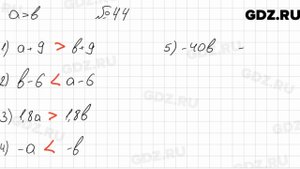 a>b №44 GDZ.RU
1) a+9 > b+9 5) -40b -
2) b-6 < a-6
3) 1,8a > 1,8b
4) -a < -b